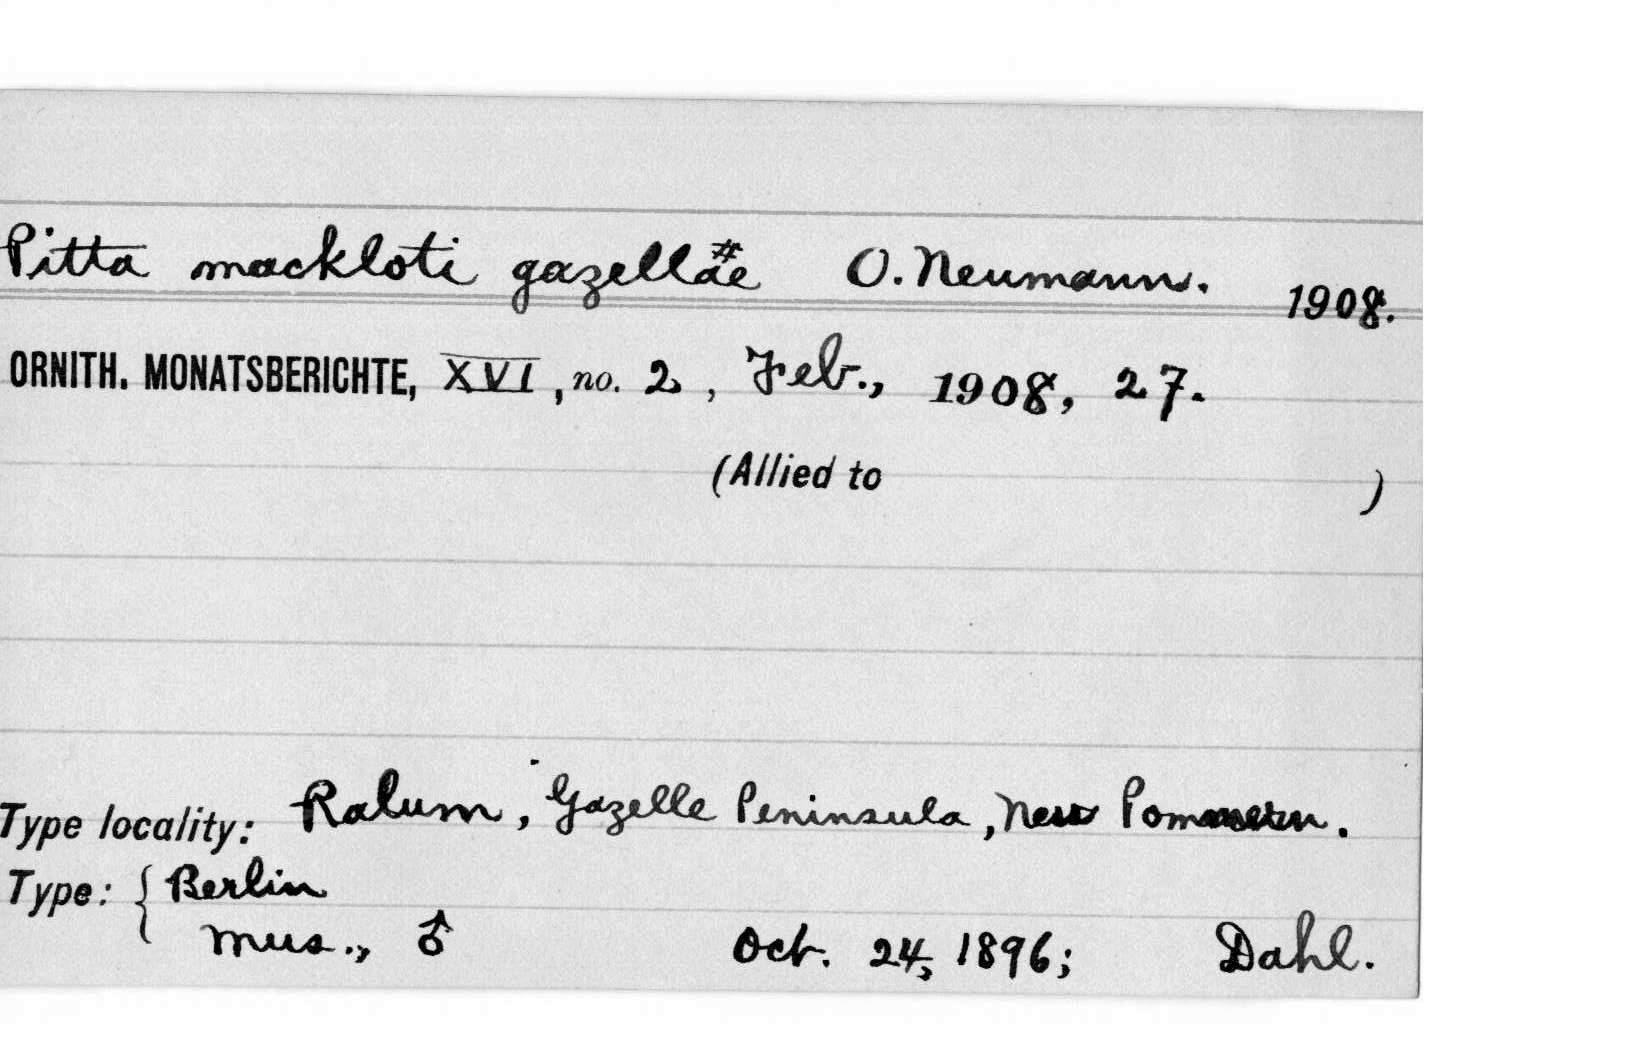 Pitta mackloti gazellae# O. Neumann. 1908.
ORNITH. MONATSBERICHTE, XVI, no. 2, Feb., 1908, 27.
(Allied to )
Type locality: Ralum, Gazelle Peninsula, New Pommern.
Type: { Berlin
Mus., ♂ Oct. 24, 1896; Dahl.